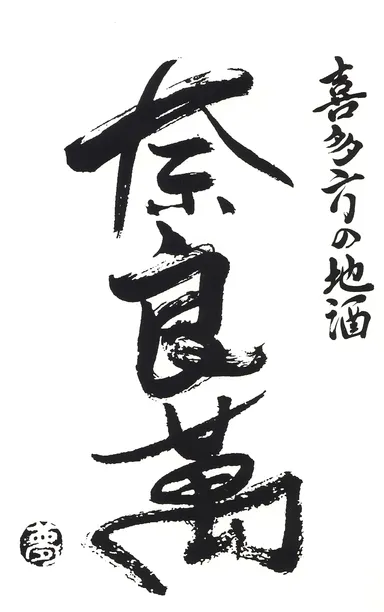 喜多方の地酒
奈良萬
夢